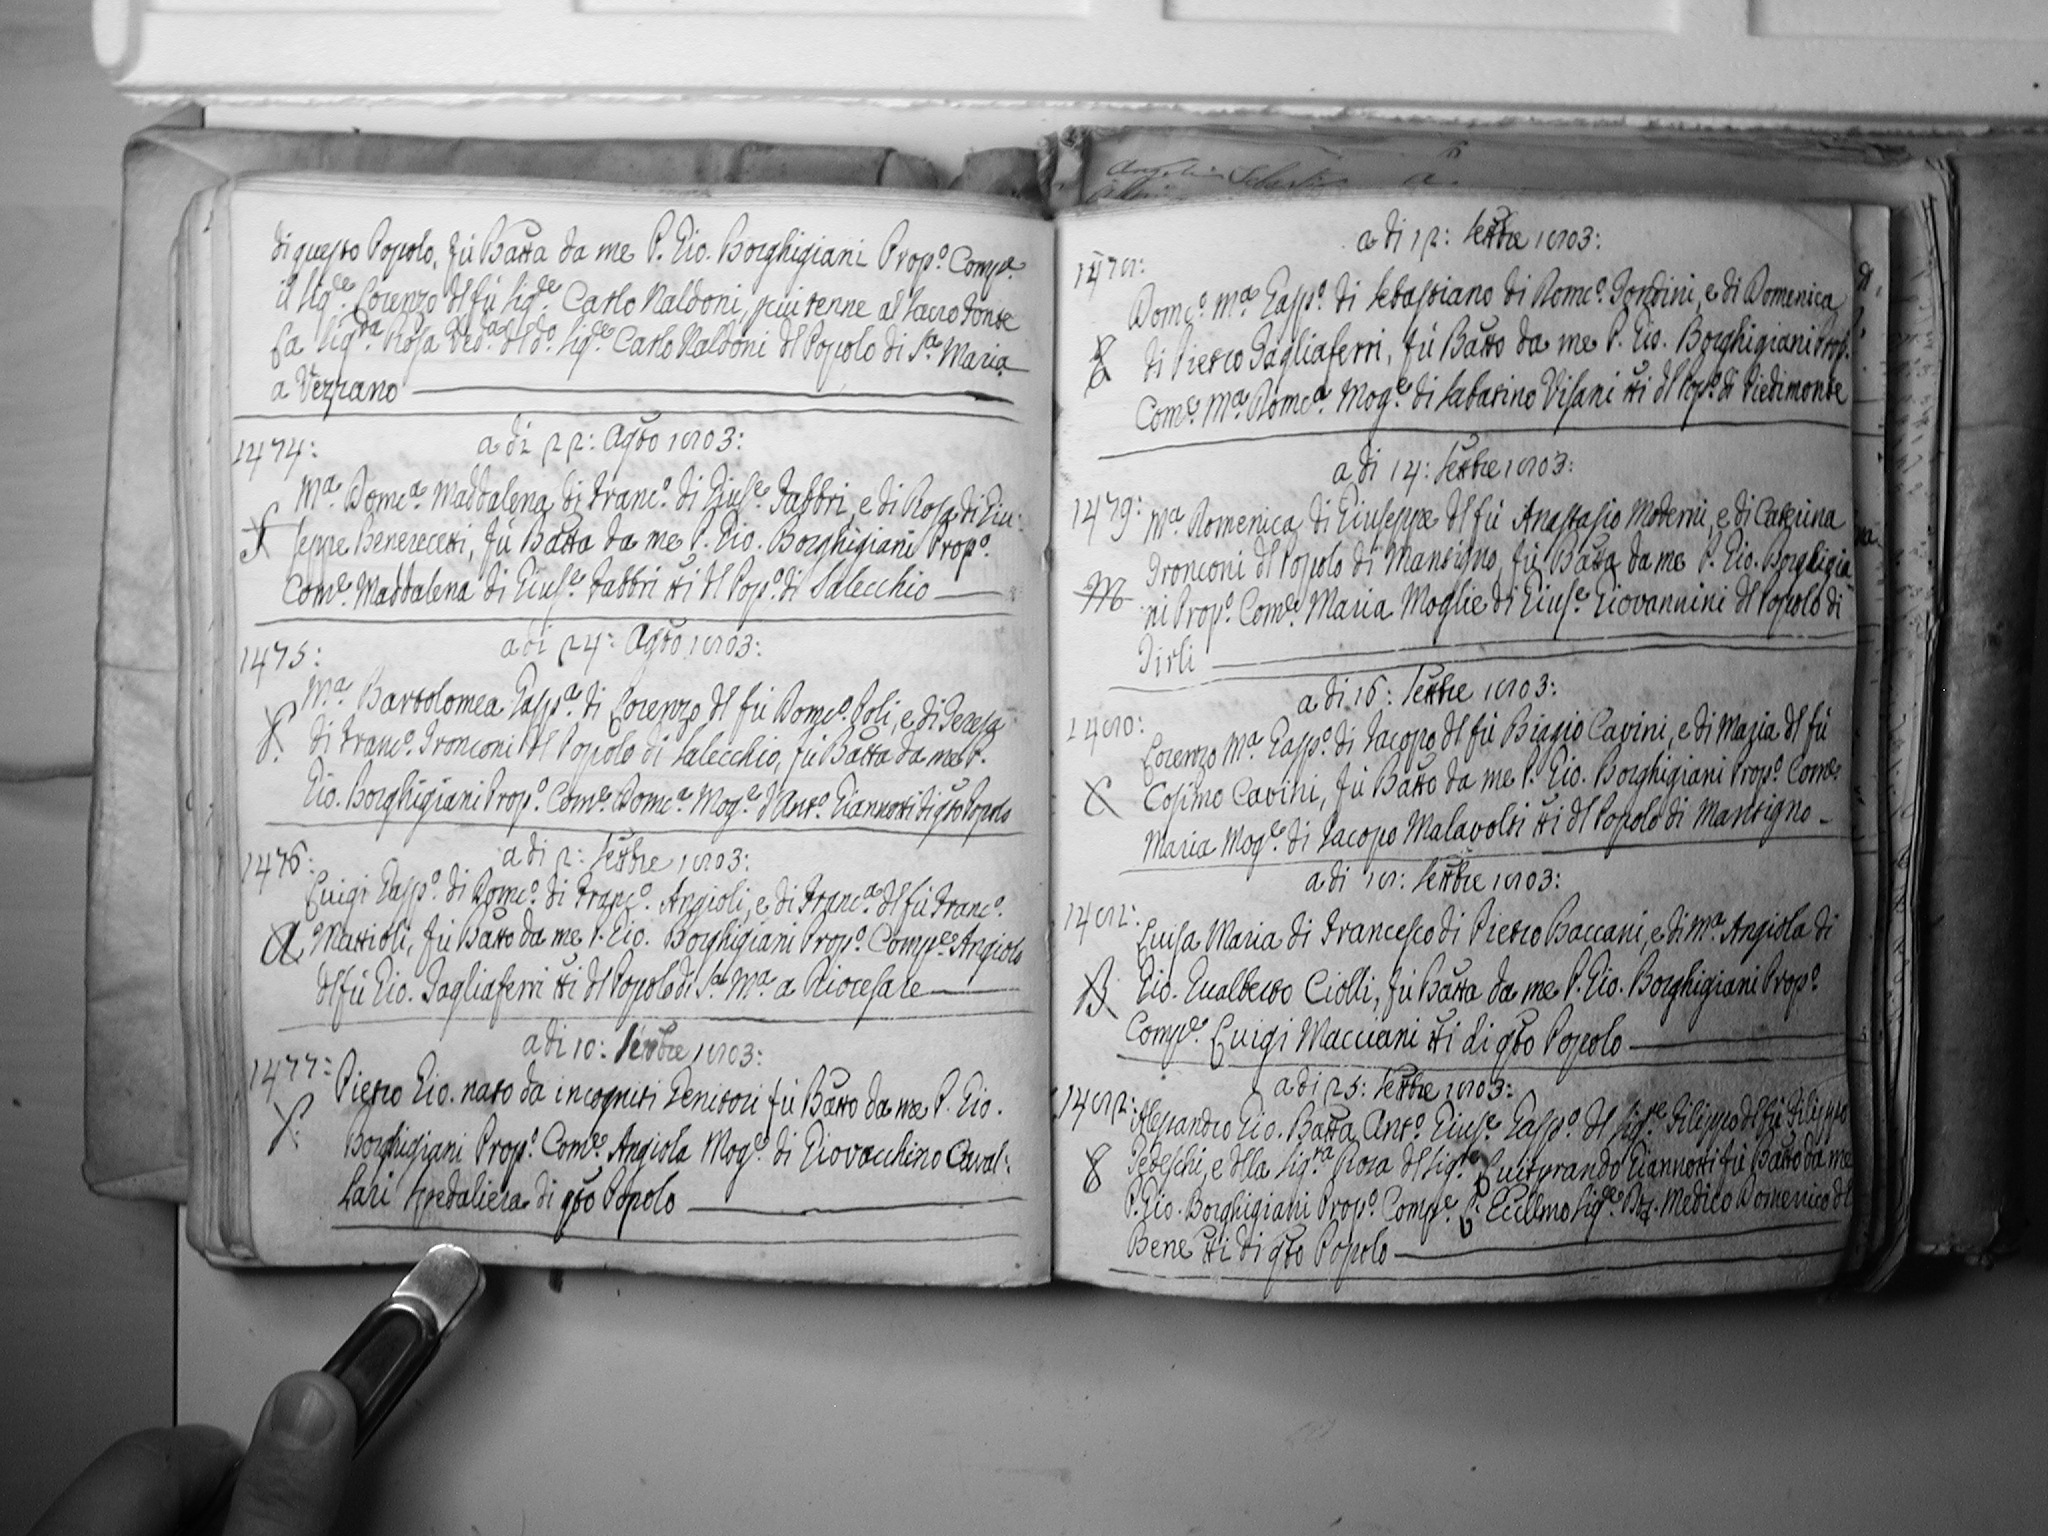 di questo Popolo, fù Batta da me P. Gio. Borghigiani Propº. Compe.
il Sigre. Lorenzo del fù Sigre. Carlo Naldoni, tenne al Sacro Fonte
la Sigra. Rosa Veda. del do. Sigre. Carlo Naldoni del Popolo di Sa. Maria
a Vezzano
1474:
a dì 22: Agto 1803:
Ma. Domca. Maddalena di Franco. di Giuse. Fabbri, e di Rosa di Giu:
seppe Benerecetti, fù Batta da me P. Gio. Borghigiani Propº.
Come. Maddalena di Giuse. Fabbri tti del Popº. di Salecchio
1475:
a dì 24: Agto 1803:
Ma. Bartolomea Gaspa. di Lorenzo del fù Domco. Poli, e di Teresa
di Franco. Tronconi del Popolo di Salecchio, fù Batta da me P.
Gio. Borghigiani Propº. Come. Domca. Moge. d'Anto. Giannotti di qto Popolo
1476:
a dì 2: Settbre 1803:
Luigi Gaspo. di Domco. di Franco. Angioli, e di Franca. del fù Franco.
A Mattioli, fù Batto da me P. Gio. Borghigiani Propº. Compe. Angiolo
del fù Gio. Tagliaferri tti del Popolo di Sa. Ma. a Riocesare
a dì 10: Settbre 1803:
1477:
Pietro Gio. nato da incogniti Genitori fù Batto da me P. Gio.
Borghigiani Propº. Come. Angiola Moge. di Giovacchino Caval:
lari Spedaliera di qto Popolo
a dì 12: Settbre 1803:
1478:
Domco. Ma. Gaspo. di Sebastiano di Domco. Tondini, e di Domenica
di Pietro Tagliaferri, fù Batto da me P. Gio. Borghigiani Prop.
Come. Ma. Domca. Moge. di Sabatino Visani tti del Popº. di Piedimonte
a dì 14: Settbre 1803:
1479:
Ma. Domenica di Giuseppe del fù Anastasio Moderni, e di Caterina
Tronconi del Popolo di Mantigno, fù Batta da me P. Gio. Borghigia
M ni Propº. Come. Maria Moglie di Giuse. Giovannini del Popolo di
Tirli
a dì 16: Settbre 1803:
1480:
Lorenzo Ma. Gaspo. di Jacopo del fù Biagio Cavini, e di Maria del fù
C Cosimo Cavini, fù Batto da me P. Gio. Borghigiani Propº. Come.
Maria Moge. di Jacopo Malavolti tti del Popolo di Mantigno
a dì 18: Settbre 1803:
1481:
Luisa Maria di Francesco di Pietro Baccani, e di Ma. Angiola di
B Gio. Gualberto Ciolli, fù Batta da me P. Gio. Borghigiani Propº.
Compe. Luigi Macciani tti di qto Popolo
a dì 25: Settbre 1803:
1482:
Alessandro Gio. Batta Anto. Giuse. Gaspo. del Sigre. Filippo del fù Filippo
Tedeschi, e della Sigra. Rosa del Sigre. Giannotti fù Batto da me
P. Gio. Borghigiani Propº. Compe. Eccellmo Sigre. Medico Domenico del
Bene tti di qto Popolo